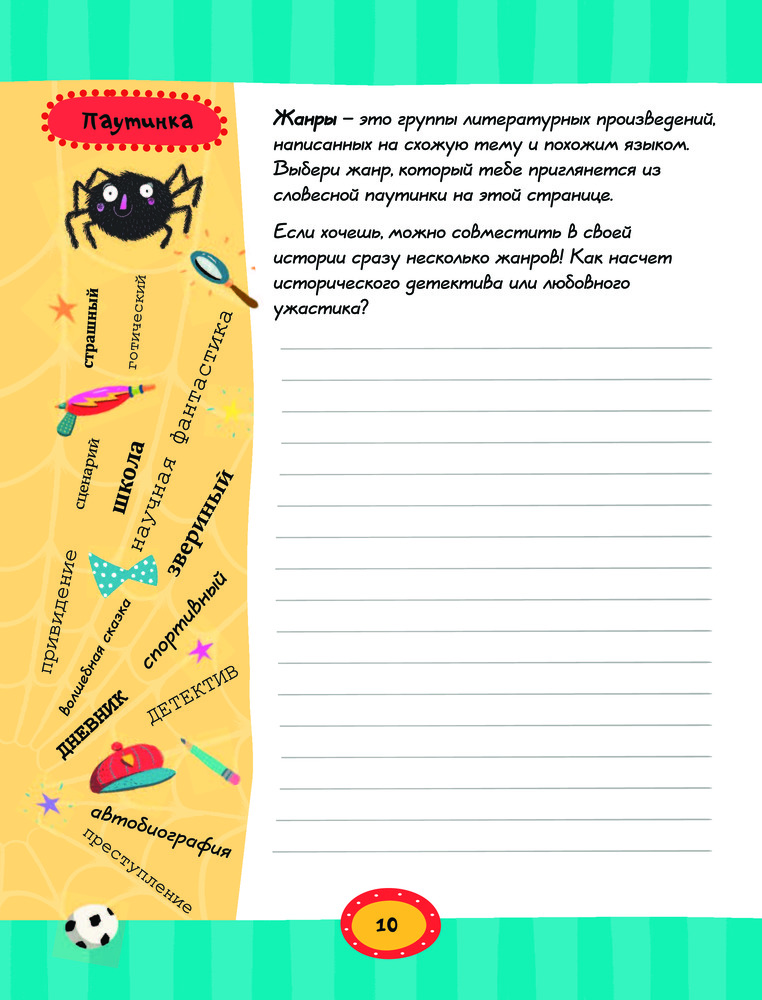 Паутинка
Жанры – это группы литературных произведений,
написанных на схожую тему и похожим языком.
Выбери жанр, который тебе приглянется из
словесной паутинки на этой странице.
Если хочешь, можно совместить в своей
истории сразу несколько жанров! Как насчет
исторического детектива или любовного
ужастика?
страшный
готический
научная фантастика
сценарий
школа
звериный
привидение
волшебная сказка
спортивный
дневник
ДЕТЕКТИВ
автобиография
преступление
10